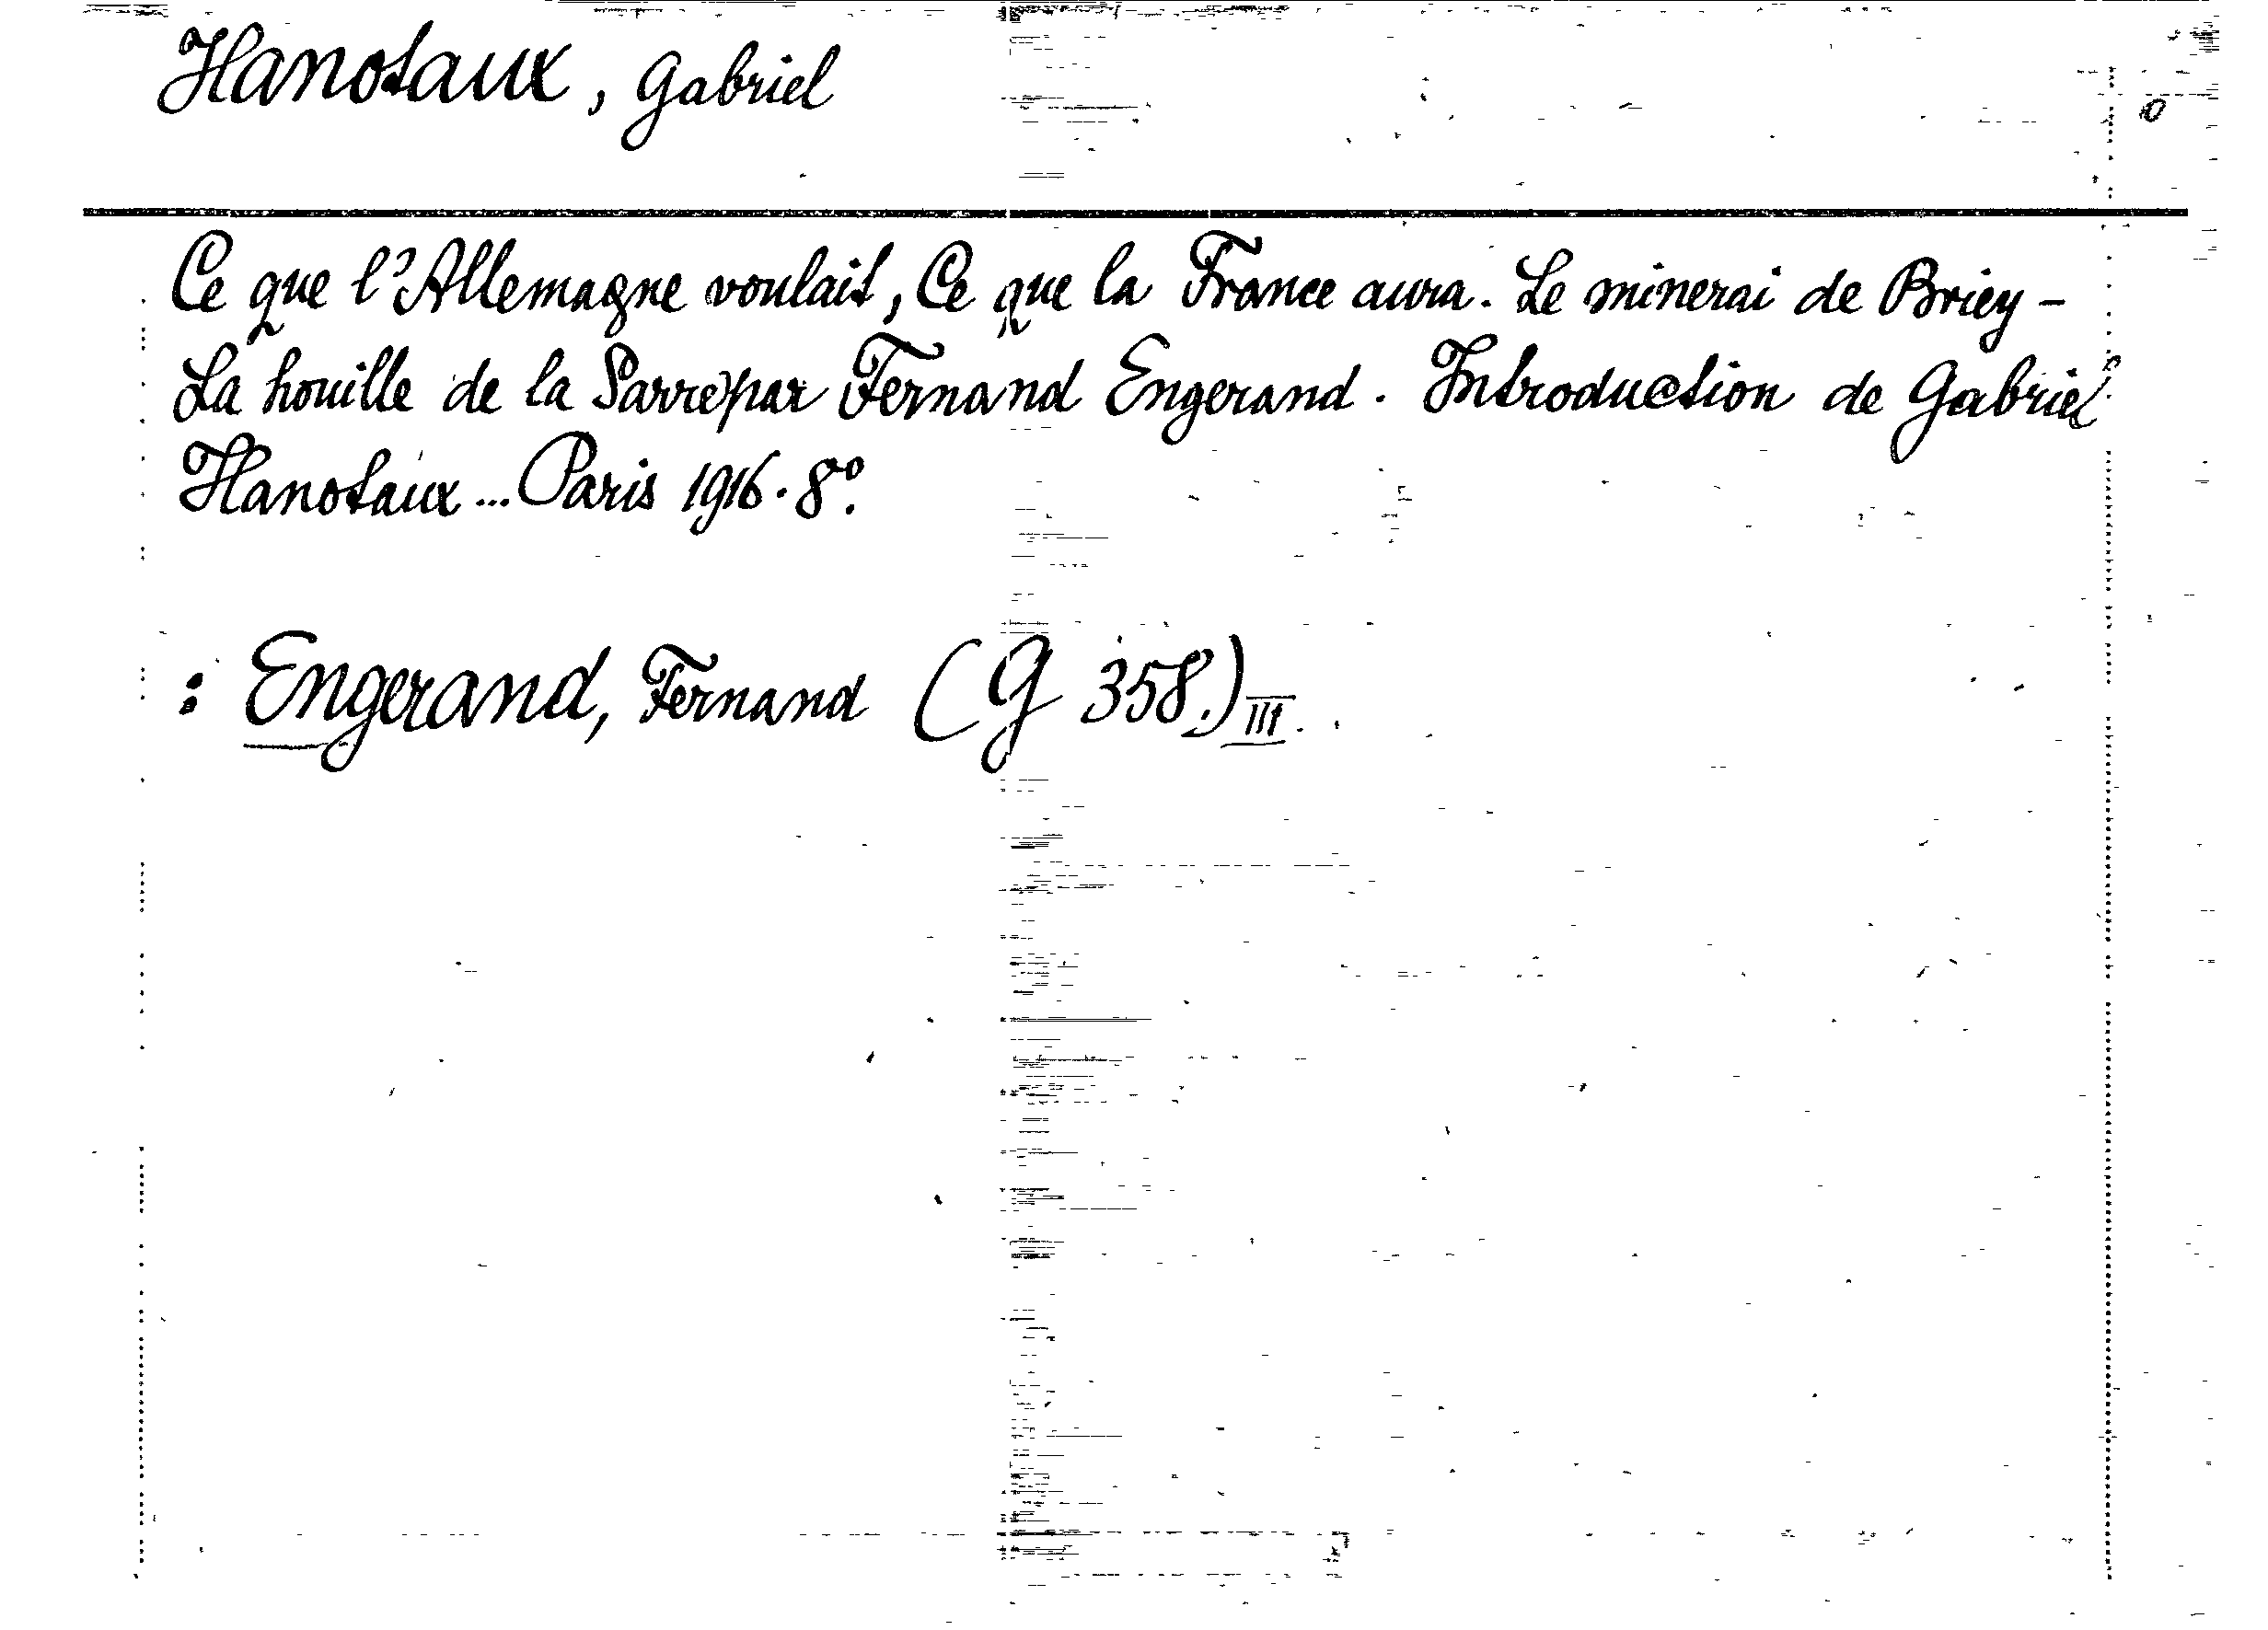 Hanotaux, Gabriel
Ce que l'Allemagne voulait, Ce que la France aura. Le minerai de Briey -
La houille de la Sarre par Fernand Engerand. Introduction de Gabriel
Hanotaux ... Paris 1916. 8º.
: Engerand, Fernand (G 358.) III.